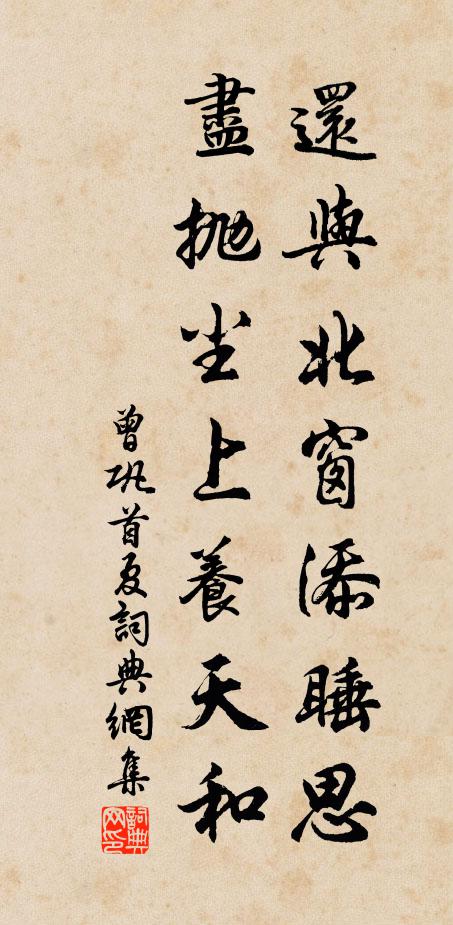 還與北窗添睡思
盡抛尘上養天和
曾巩首夏詞典網集
詞典网印